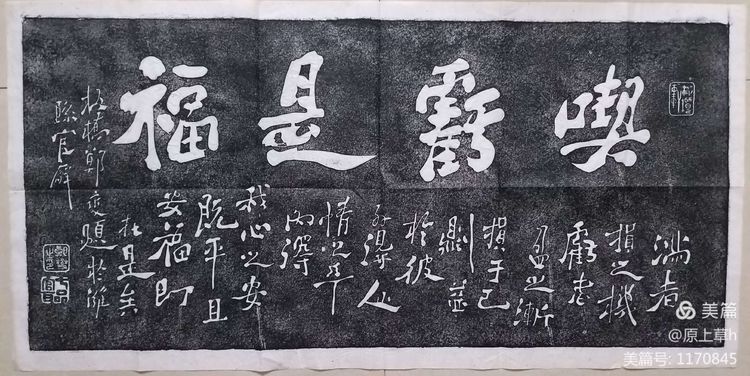 喫虧是福
滿者
損之機
虧者
盈之漸
損于己
則益
於彼
外得人
情之平
內得
我心之安
既平且
安福即
在是矣
板橋鄭燮題於濰
縣官廨
美篇
@原上草h
美篇号: 1170845